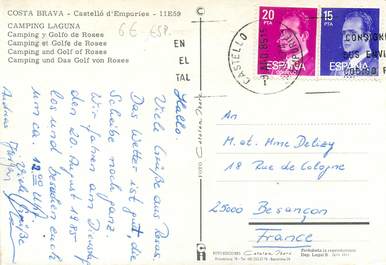 COSTA BRAVA - Castelló d'Empuries - 11E59
CAMPING LAGUNA
Camping y Golfo de Roses
Camping et Golfe de Roses
Camping and Golf of Roses
Camping und Das Golf von Roses
6€ ESP.
EN
EL
TAL
CASTELLO
20
PTA
ESPAÑA
15
PTA
ESPAÑA
CONSIGNE
SUS ENVI
CODIGO P
Hallo.
Viele Grüße aus Rosas.
Das Wetter ist gut, die
Scheibe noch ganz.
Wir fahren am Dienstag
den 20. August 1985
los und besuchen euch
um ca. 12.00 Uhr.
Viele Grüße
M. et Mme Deliey
18 Rue de Chalet
25000 Besançon
France
Prohibida la reproducción